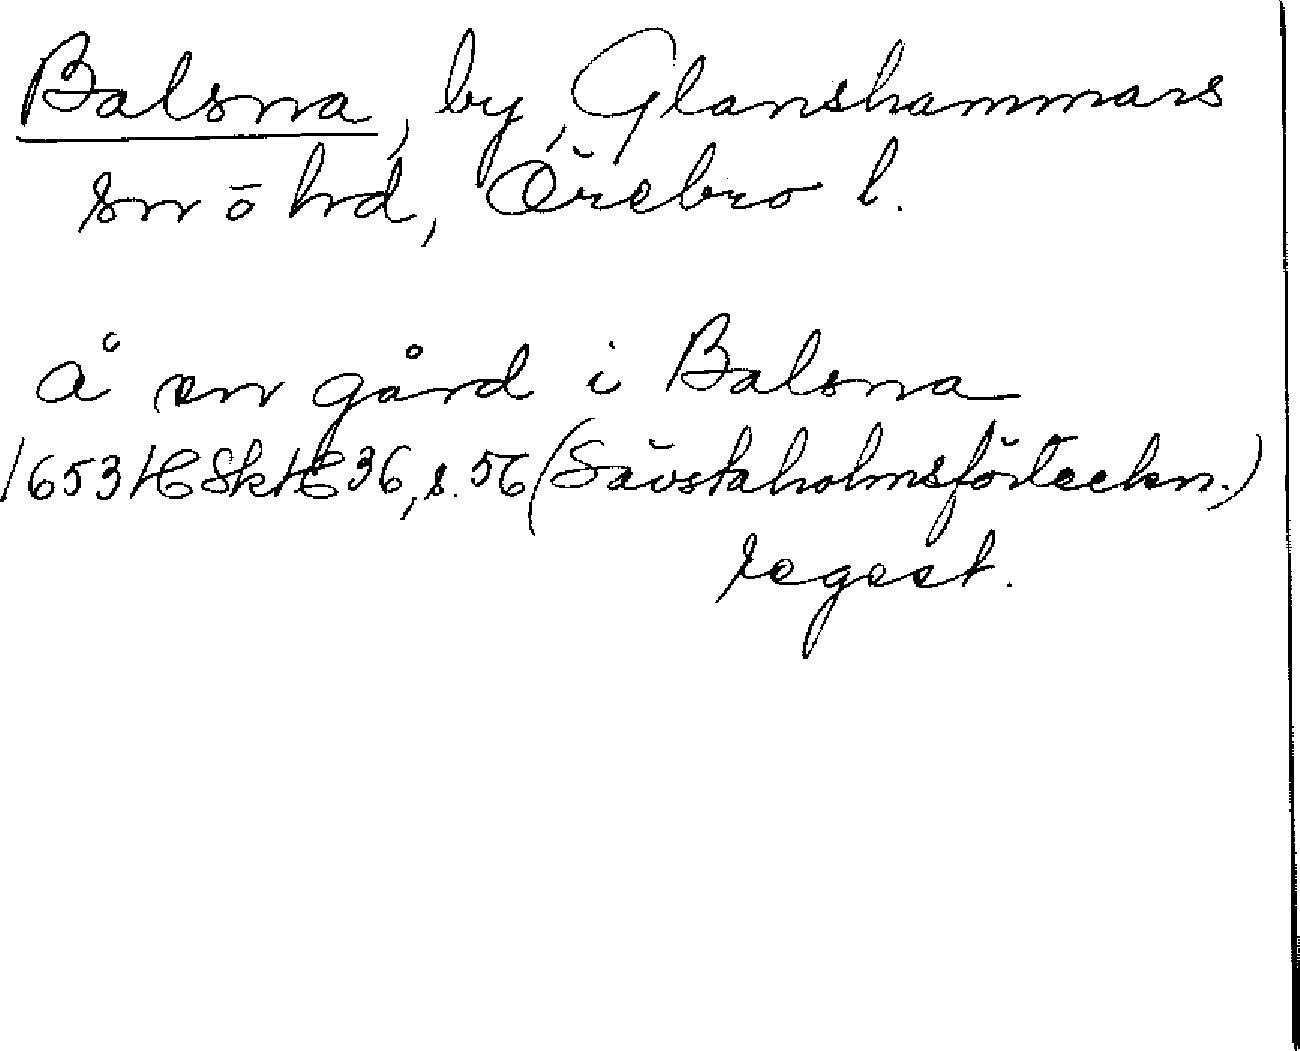 Balsna, by, Glanshammars
sn o hd, Örebro l.
Å en gård i Balsna
1653 HC SkHC 36, s. 56 (Sävstaholmsförteckn.)
regest.